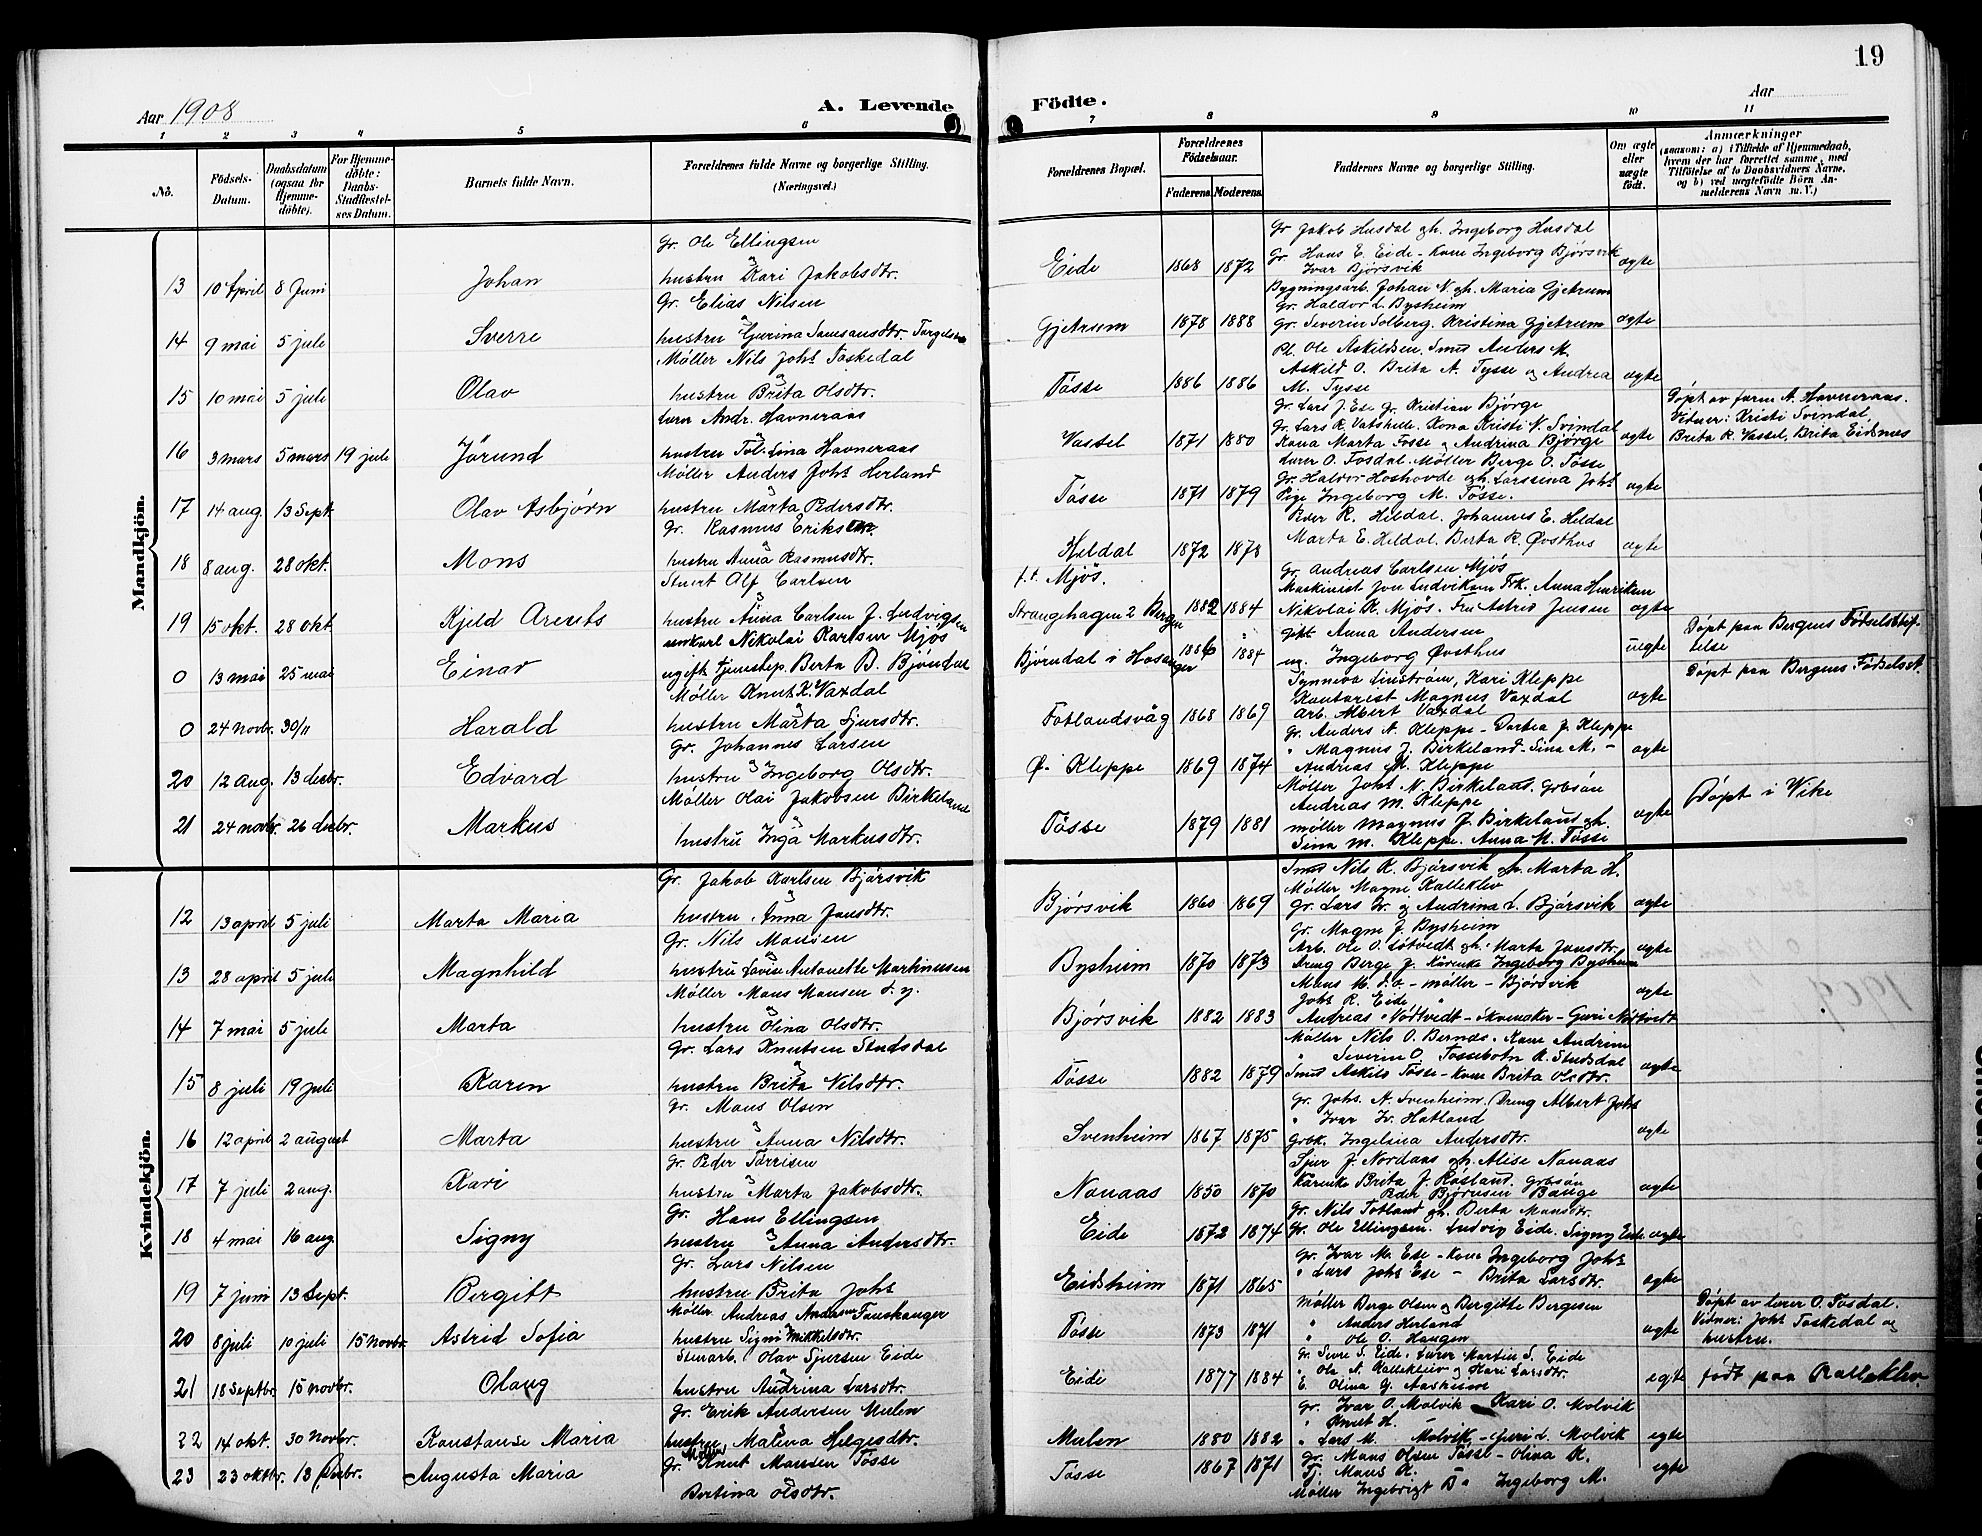 19
Aar 1908
A. Levende Födte.
Aar
1 2 3 4 5 6 7 8 9 10 11
No.
Födsels-Datum.
Daabsdatum (ogsaa for Hjemme-döbte).
For Hjemme-döbte: Daabs-Stadfæstel-ses Datum.
Barnets fulde Navn.
Forældrenes fulde Navne og borgerlige Stilling. (Næringsvei.)
Forældrenes Bopæl.
Forældrenes Födselsaar.
Faderens. Moderens.
Faddernes Navne og borgerlige Stilling.
Om ægte eller uægte födt.
Anmærkninger
(saasom: a) i Tilfælde af Hjemmedaab, hvem der har forrettet samme, med Tilföielse af to Daabsvidners Navne, og b) ved uægtefödte Börn An-melderens Navn m. V.)
Mandkjön.
Gr. Ole Ellingsen
Gr Jakob Husdal gh. Ingeborg Husdal
13 10 April 8 Juni Johan hustru Kari Jakobsdtr. Eide 1868 1872 Gr. Hans E. Eide - Kone Ingeborg Bjørsvik Ivar Bjørsvik ægte
Gr. Elias Nilsen
Bygningsarb. Johan N. gh. Maria Gjetrum
Gr. Haldor L. Bysheim
14 9 mai 5 juli Sverre hustru Gurina Samsonsdtr. Gjetrum 1878 1888 Gr. Severin Solberg. Kristina Gjetrum ægte
Møller Nils Johs Toskedal
Pl. Ole Askildsen. Smed Anders M.
15 10 mai 5 juli Olav hustru Brita Olsdtr. Tösse 1886 1886 Askild O. Brita A. Tysse og Andrea M. Tysse ægte
Lærer Andr. Havneraas
Gr. Lars J. Ese gr. Kristian Bjørge
Gr. Lars R. Vatshelle. Kona Kristi N. Svindal
16 3 mars 5 mars 19 juli Jørund hustru Lina Havneraas Vassel 1871 1880 Kona Marta Fosse og Andrina Bjørge ægte
Døpt av farm A. Havneraas. Vidner: Kristi Svindal, Brita R. Vassel, Brita Eidsnes
Møller Anders Johs Herland
Lærer O. Tosdal. Møller Berge O. Tösse
17 14 aug. 13 Sept. Olav Asbjørn hustru Marta Pedersdtr. Tösse 1871 1879 Gr. Haldor Hoshovde gh. Larssina Johs Pige Ingeborg M. Tösse. ægte
Gr. Rasmus Eriksen
Peder R. Hildal. Johannes E. Hildal
18 8 aug. 28 okt. Mons hustru Anna Rasmusdtr. Hildal 1872 1878 Marta E. Hildal. Berta R. Øvsthus ægte
Stuert Alf Carlsen
f.t. Mjøs.
Gr. Andreas Carlsen Mjøs
Maskinist Jon Ludviksen Frk. Anna Henriksen
19 15 okt. 28 okt. Kjeld Arents hustru Anna Carlsen f. Ludvigsen Strangehagen 2 Bergen 1882 1884 Nikolai K. Mjøs. Fru Astrid Jensen ægte
ungkarl Nikolai Karlsen Mjøs
gift Anna Andersen
0 13 mai 25 mai Einar ugift tjenestep. Berta B. Bjøndal Bjørndal i Hosanger 1886 1884 ug. Ingeborg Øvsthus uegte
Døpt paa Bergens Fødselsstif-telse
Møller Knut K. Vaxdal
Synneva Linstrøm, Kari Kleppe
Kontorist Magnus Vaxdal
0 24 novbr. 30/11 Harald hustru Marta Sjursdtr. Fotlandsvåg 1868 1869 Arb. Albert Vaxdal ægte
Døpt paa Bergens Fødselsst.
Gr. Johannes Larsen
Gr. Anders N. Kleppe - Dortea J. Kleppe
" Magnus J. Birkeland - Sina M. -
20 12 Aug. 13 decbr. Edvard hustru Ingeborg Olsdtr. Ø. Kleppe 1869 1874 Andreas M. Kleppe ægte
Møller Olai Jakobsen Birkeland
Møller Johs N. Birkeland. Grbsøn
Andreas M. Kleppe
21 24 novbr. 26 decbr. Markus hustru Inga Markusdtr. Tösse 1879 1881 møller Magnus J. Birkeland gh. Sina M. Kleppe. Anna M. Tösse ægte
Døpt i Vike
Kvindekjön.
Gr. Jakob Karlsen Bjørsvik
Smed Nils K. Bjørsvik gh. Marta H.
Møller Magne Kalleklev
12 13 april 5 juli Marta Maria hustru Anna Jonsdtr. Bjørsvik 1860 1869 Gr. Lars Iv. og Andrina L. Bjørsvik ægte
Gr. Nils Monsen
Gr. Magne J. Bysheim
Arb. Ole O. Løtvedt gh. Marta Jonsdtr.
13 28 april 5 juli Magnhild hustru Lovise Antonette Martinusen Bysheim 1870 1873 Dreng Berge J. Kårenke Ingeborg Bysheim ægte
Møller Mons Monsen d. y.
Mons M. d.e. - møller - Bjørsvik
Johs R. Eide "
14 7 mai 5 juli Marta hustru Olina Olsdtr. Bjørsvik 1882 1883 Andreas Nødtvedt - Skomaker - Guri Nødtvedt ægte
Gr. Lars Knutsen Studsdal
Møller Nils O. Berndes. Kone Andrine
" Severin O. Tossebotn K. Studsdal
15 8 juli 19 juli Karen hustru Brita Nilsdtr. Tösse 1882 1879 Smed Askild Tösse - Kone Brita Olsdtr. ægte
Gr. Mons Olsen
Gr. Johs. A. Svenheim. Dreng Albert Johs
" Ivar Iv. Hatland
16 12 april 2 august Marta hustru Anna Nilsdtr. Svenheim 1867 1875 Grbk. Ingelina Andersdtr. ægte
Gr. Peder Torrisen
Sjur J. Nordaas gh. Alise Nonaas
Kårenke Brita J. Røsland. Grbsøn
17 7 juli 2 aug. Kari hustru Marta Jakobsdtr. Nonaas 1850 1870 Peder Bjørnsen Bauge ægte
Gr. Hans Ellingsen
Gr. Nils Totland gh. Berta Monsdtr.
18 4 mai 16 aug. Signy hustru Anna Andersdtr. Eide 1872 1874 Gr. Ole Ellingsen. Ludvig Eide. Signy Eide ægte
Gr. Lars Nilsen
Gr. Ivar M. Ese - Kone Ingeborg Johs
19 7 juni 13 Sept. Bergitt hustru Brita Johs Eidsheim 1871 1865 " Lars Johs Ese - Brita Larsdtr. ægte
Møller Andreas Andersen Fauskanger
Møller Berge Olsen og Bergitte Bergesen
" Anders Herland
20 8 juli 10 juli 15 novbr. Astrid Sofia hustru Signi Mikkelsdtr. Tösse 1873 1871 " Ole O. Haugen ægte
Døpt av lærer O. Tosdal. Vidner: Johs Toskedal og hustru.
Stenarb. Olav Sjursen Eide
Gr. Sevr. S. Eide. Lærer Martin S. Eide
" Ole N. Kalleklev og Kari Larsdtr.
21 18 Septbr. 15 novbr. Olaug hustru Andrina Larsdtr. Eide 1877 1884 E. Olina G. Aasheim egte
født paa Kalleklev.
Gr. Erik Andersen Mulen
Gr. Ivar O. Molvik Kari O. Molvik
" Knut H.
22 14 okt. 30 Novbr. Konstanse Maria hustru Malena Helgesdtr. Mulen 1880 1882 " Lars M. - Molvik - Guri L. Molvik egte
Gr. Knut Monsen Tösse
Gr. Mons Olsen Tösse - Olina K.
23 23 oktbr. 13 Decbr. Augusta Maria Bertina Olsdtr. Tösse 1867 1871 Tj. Mons K. egte
Møller Ingebrigt T. Ingeborg M.